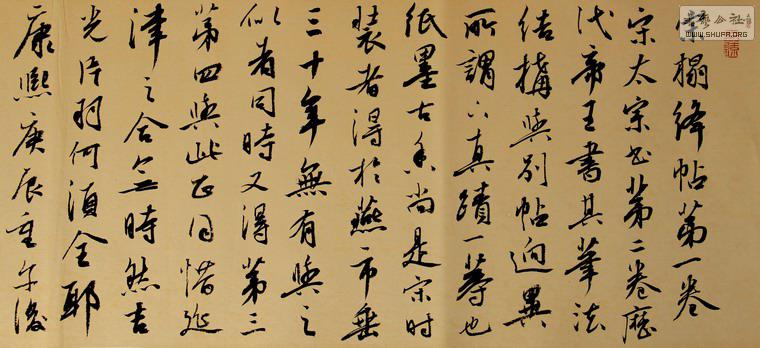 宋榻绛帖第一卷
宋太宗书第二卷歷
代帝王書其筆法
结搆與别帖迥異
所謂下真蹟一等也
纸墨古香尚是宋时
装者得於燕市垂
三十年無有與之
似者同時又得第三
第四與此正同惜延
津之合無時然吉
光片羽何須全耶
康熙庚辰重午後
WWW.SHUFA.ORG